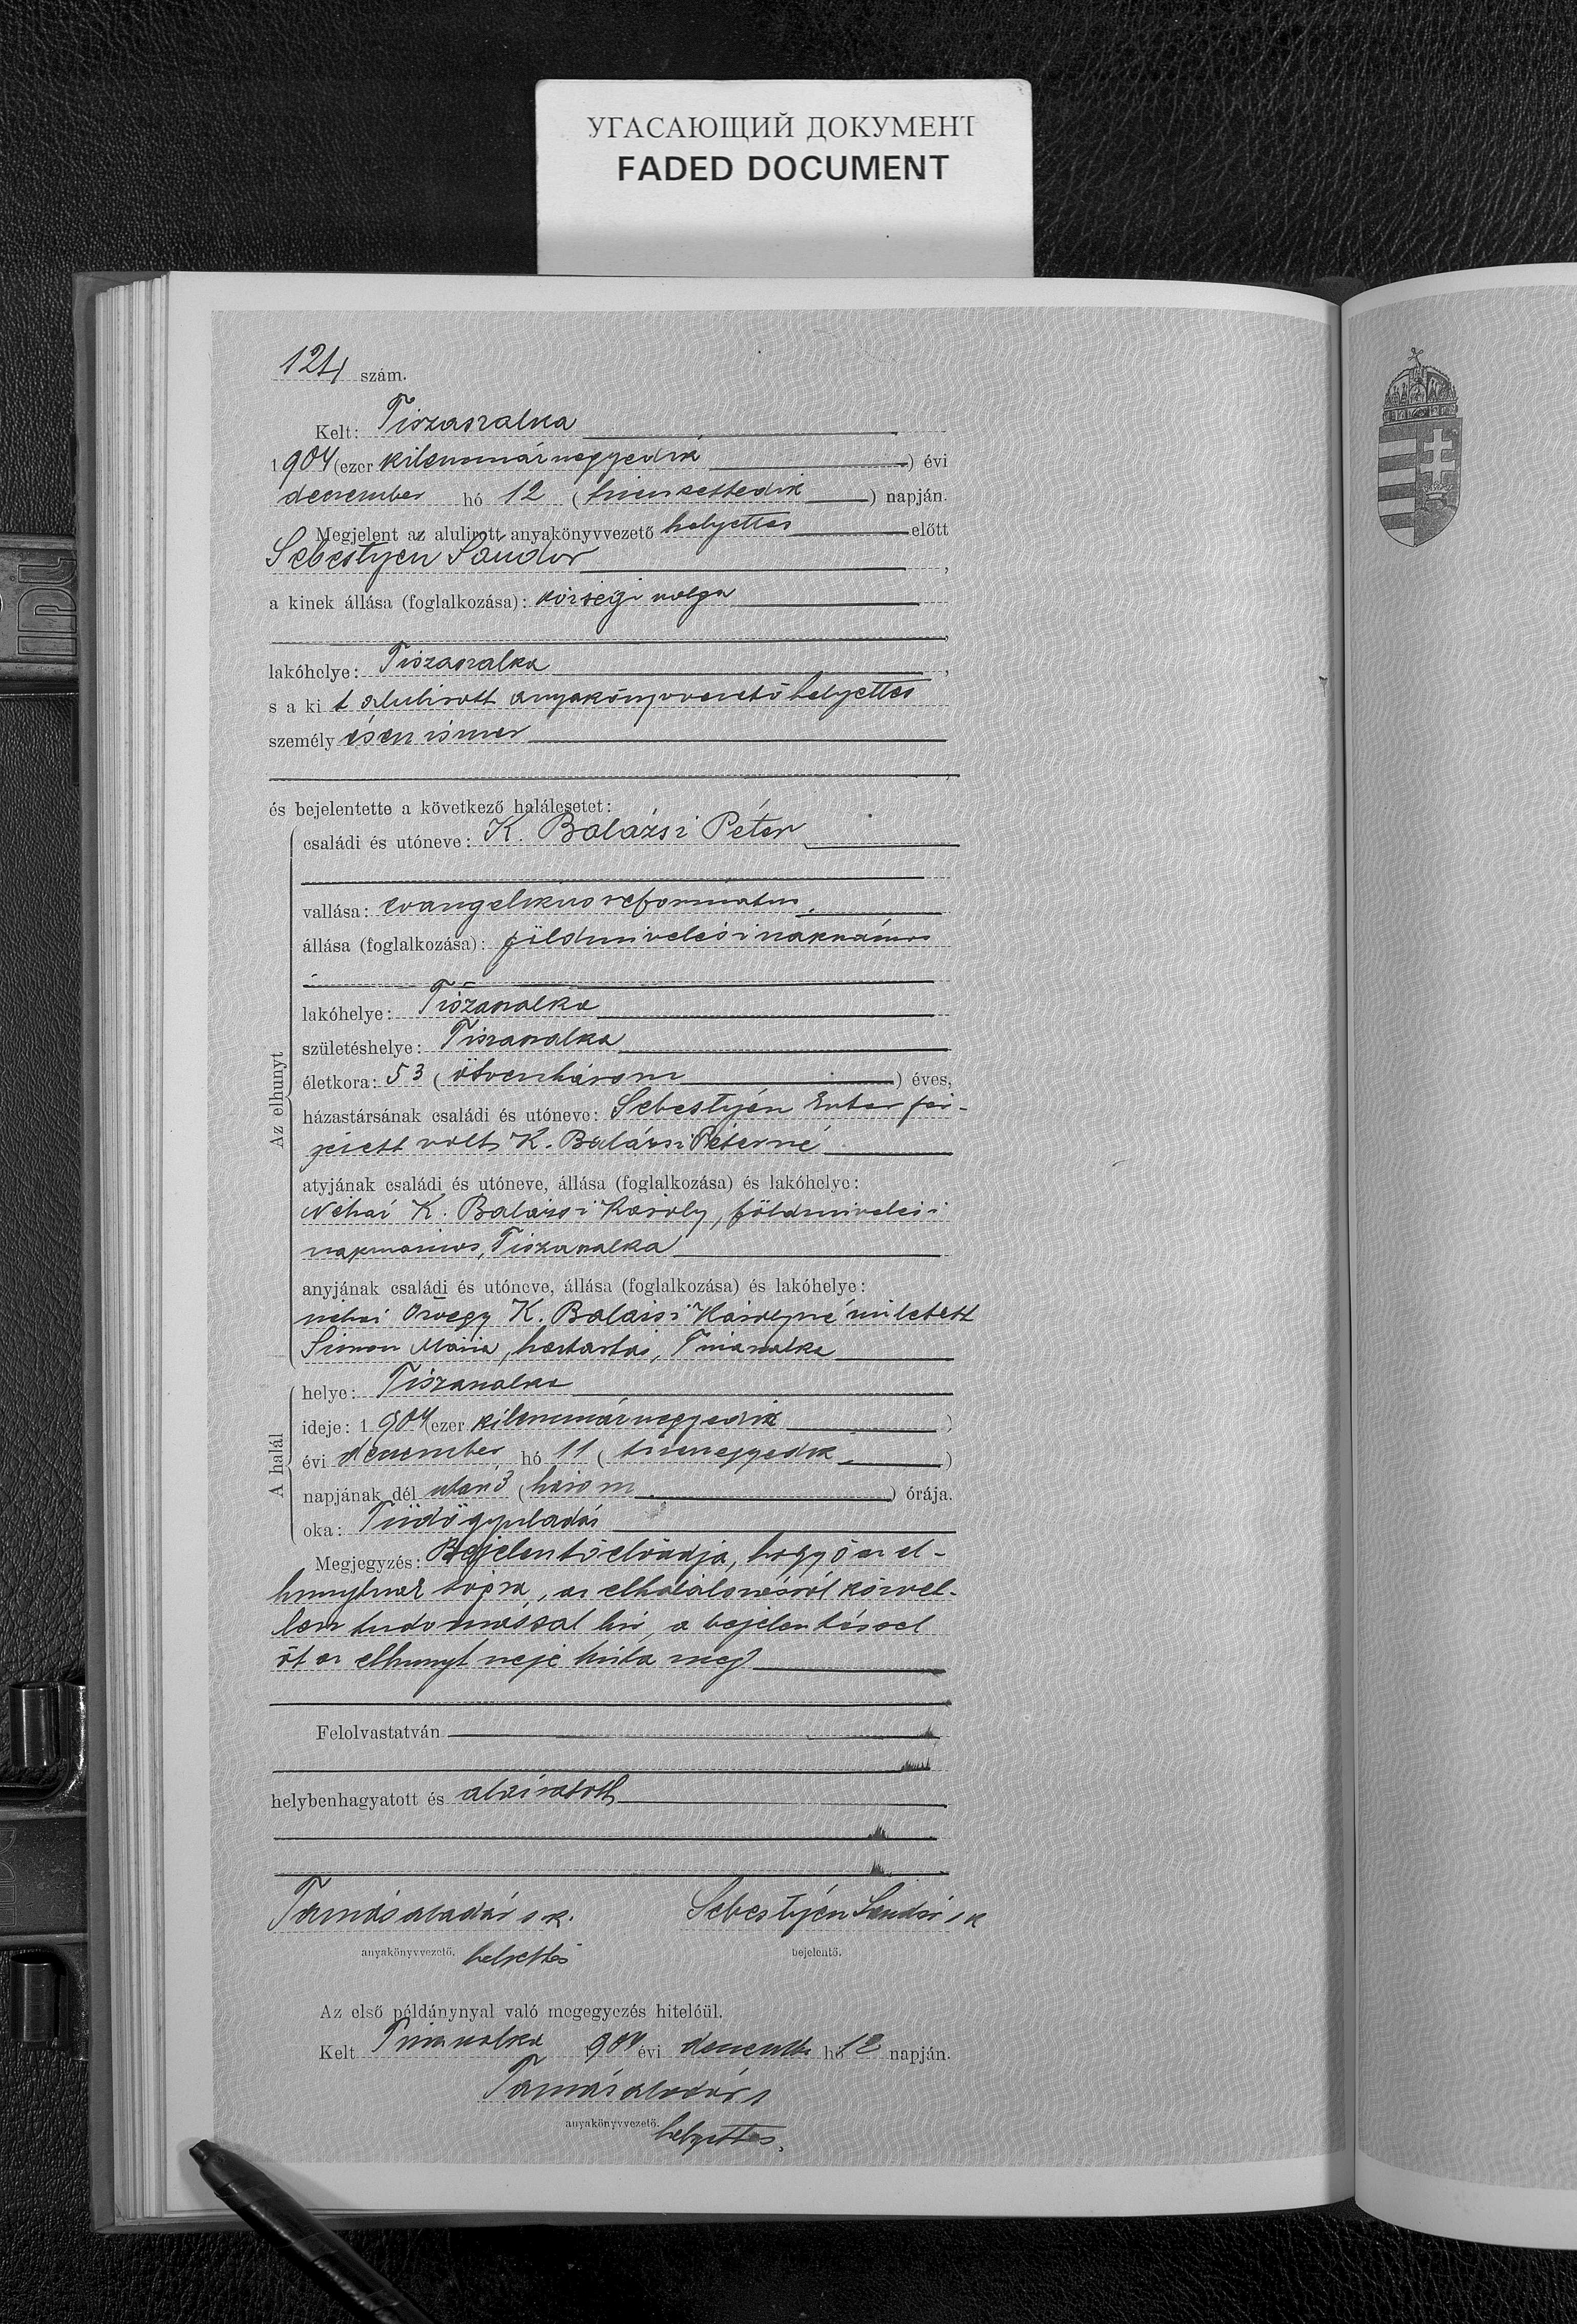 УГАСАЮЩИЙ ДОКУМЕНТ
FADED DOCUMENT
124 szám.
Kelt: Tiszaszalka
1904 (ezer kilenszáznegyedik) évi
december hó 12 (tizenkettedik) napján.
Megjelent az alulirott anyakönyvvezető helyettes előtt
Sebestyén Sándor,
a kinek állása (foglalkozása): községi szolga
lakóhelye: Tiszaszalka,
s a ki t alulirott anyakönyvvezető helyettes
személy esen ismer
és bejelentette a következő halálesetet:
Az elhunyt
családi és utóneve: K. Balázsi Péter
vallása: evangelikus református,
állása (foglalkozása): földmivelési napszámos
lakóhelye: Tiszaszalka
születéshelye: Tiszaszalka
életkora: 53 (ötvenhárom) éves,
házastársának családi és utóneve: Sebestyén Eszter fér-
jezett volt K. Balázsi Péterné
atyjának családi és utóneve, állása (foglalkozása) és lakóhelye:
Néhai K. Balázsi Károly, földmivelési
napszámos, Tiszaszalka
anyjának családi és utóneve, állása (foglalkozása) és lakóhelye:
néhai özvegy K. Balázsi Károlyné született
Simon Mária, háztartás, Tiszaszalka
A halál
helye: Tiszaszalka
ideje: 1904 (ezer kilenszáznegyedik)
évi december hó 11 (tizenegyedik)
napjának dél után 3 (három) órája.
oka: Tüdőgyuladás
Megjegyzés: Bejelentő előadja, hogy ő az el-
hunytnak sógora, az elhalálozásról közvet-
len tudomással bir, a bejelentéssel
őt az elhunyt neje bizta meg
Felolvastatván
helybenhagyatott és aláiratott
Tamás Aladár s. k. Sebestyén Sándor s k
anyakönyvvezető. helyettes bejelentő.
Az első példánynyal való megegyezés hiteléül.
Kelt Tiszaszalka 1904 évi december hó 12 napján.
Tamás Aladár
anyakönyvvezető. helyettes.